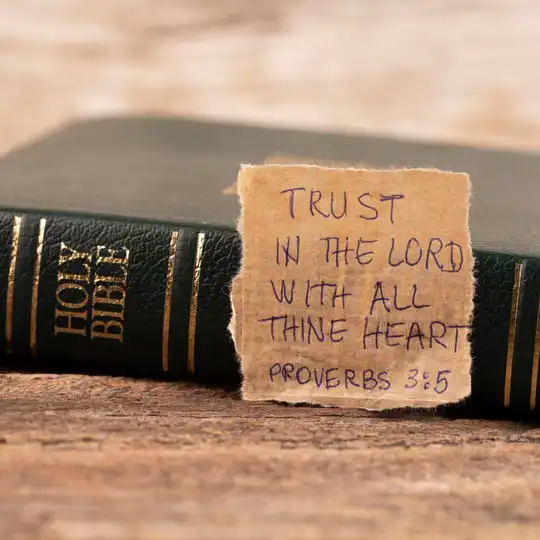 HOLY
BIBLE
TRUST
IN THE LORD
WITH ALL
THINE HEART
PROVERBS 3:5